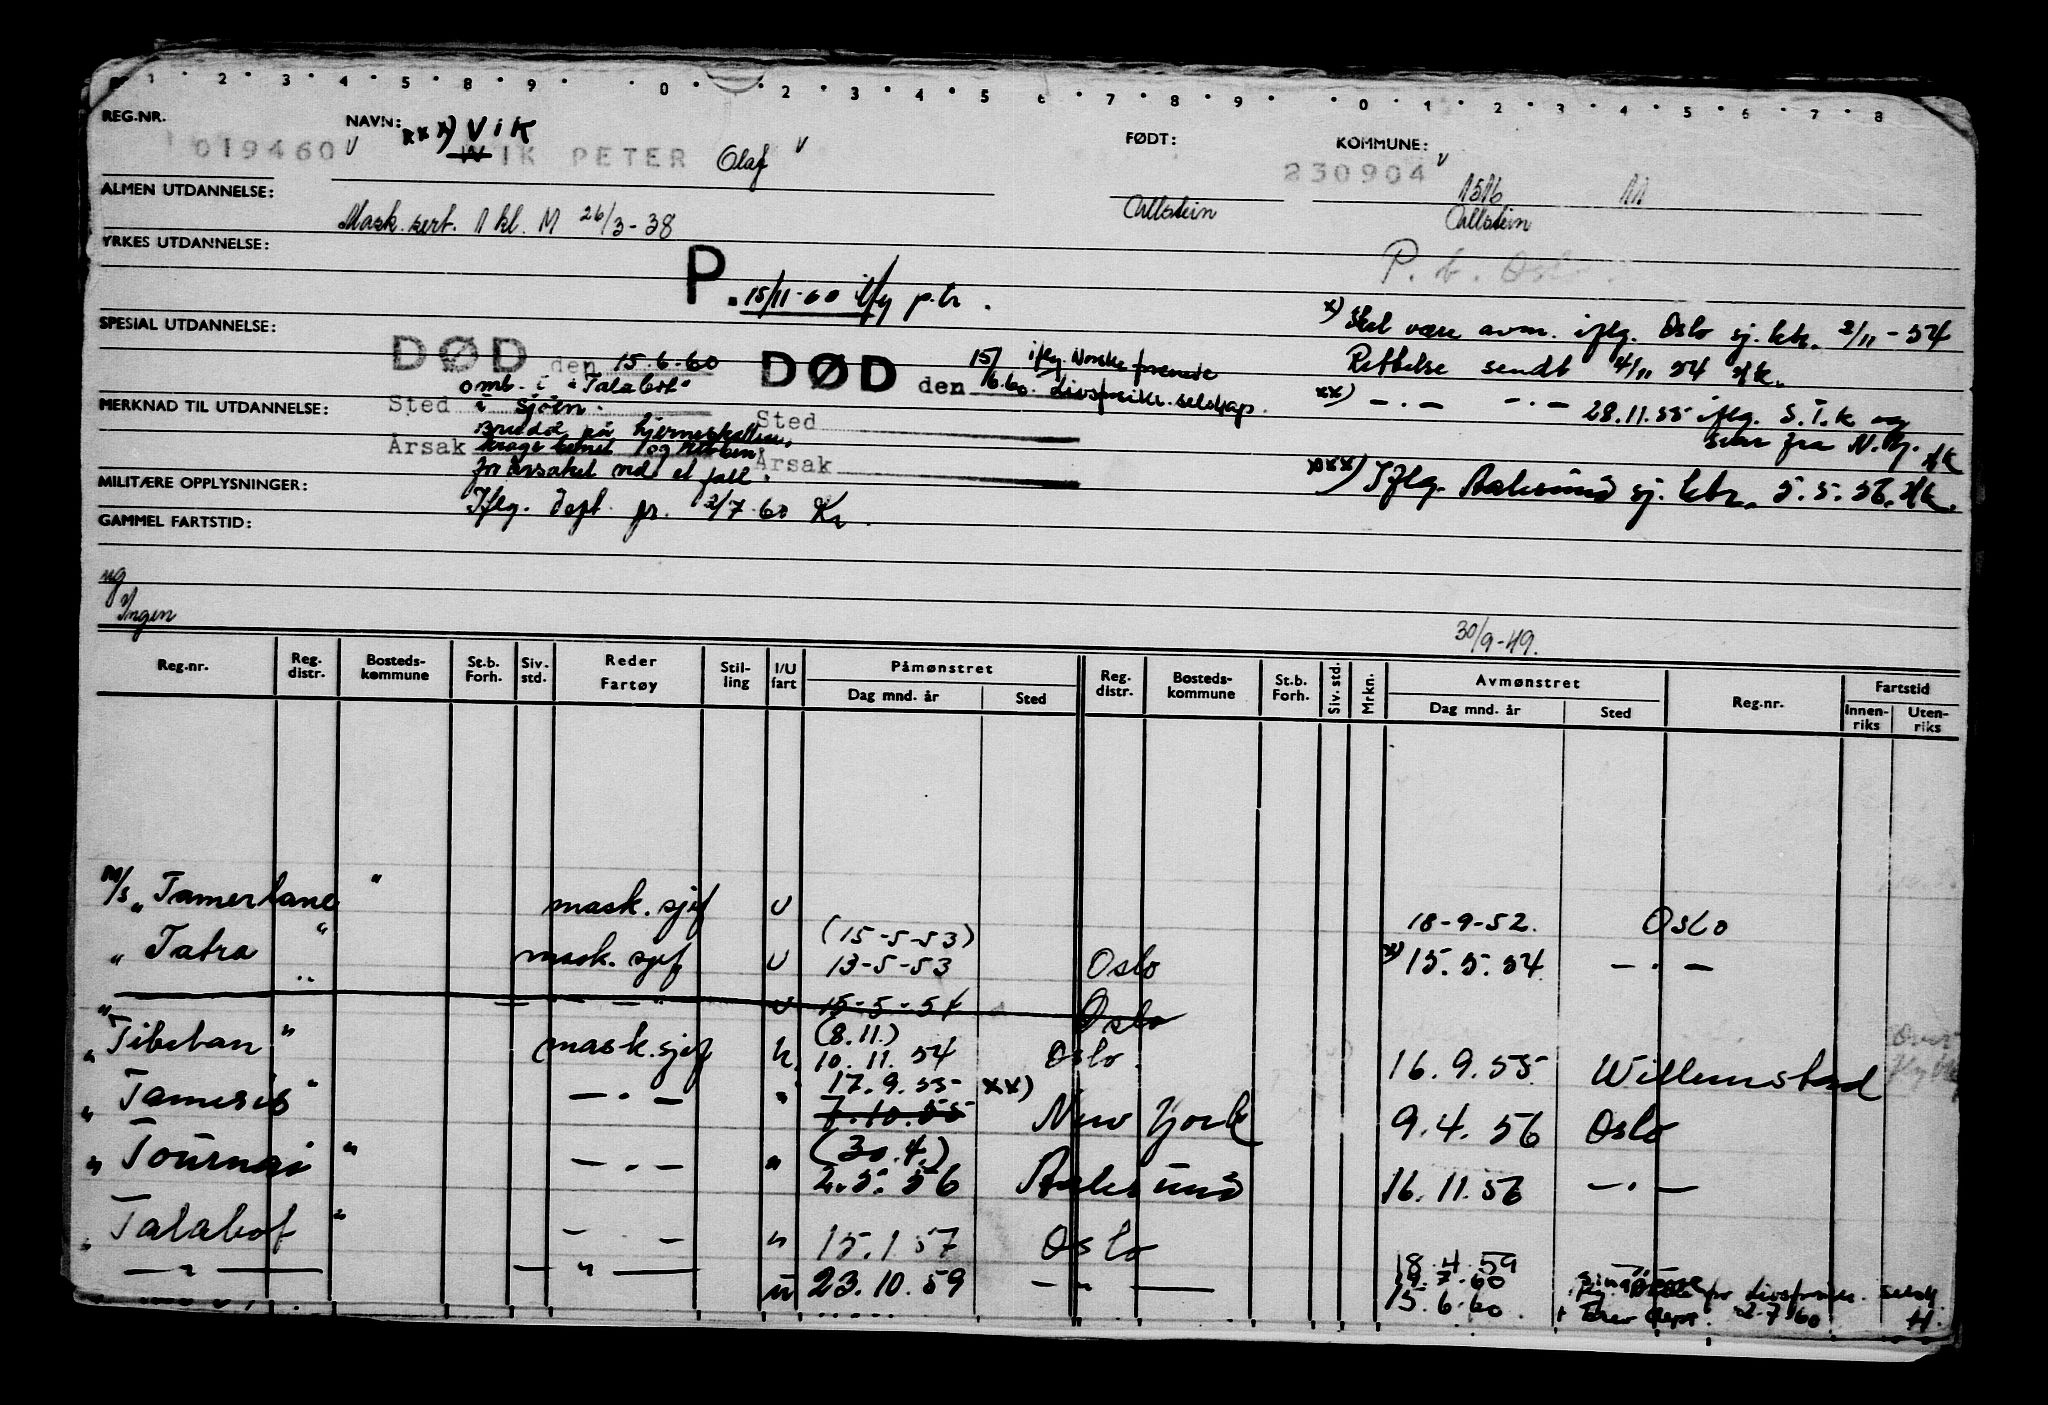 1 2 3 4 5 8 9 0 2 3 4 5 6 7 8 9 0 1 2 3 4 5 6 7 8
REG.NR. NAVN: xxx) Vik FØDT: KOMMUNE:
019460 WIK PETER Olaf 230904 1516
ALMEN UTDANNELSE: Ulstein Ulstein
Mask. sert. 1 kl. M 26/3-38
YRKES UTDANNELSE:
P. b. Oslo
P. 15/11-60 iflg p.tr.
x) Skal være avm. iflg. Oslo sj. ktr. 2/11-54
SPESIAL UTDANNELSE:
DØD den 15.6.60 DØD den 15/6.60. iflg. Norske forenede Livsforsikr. selskap.
Rettelse sendt 4/11 54 Hk.
omb. i "Talabot"
MERKNAD TIL UTDANNELSE: Sted i sjøen. Sted
xx) —.— —.— 28.11.55 iflg. S.T.k og
svar fra N.Y. Hk
Brudd på hjerneskallen,
Årsak krage benet og ribben Årsak
forårsaket ved et fall.
xxx) Iflg. Aalesund sj. ktr. 5.5.56. Hk.
MILITÆRE OPPLYSNINGER:
Iflg. Dept. br. 2/7-60 Kr.
GAMMEL FARTSTID:
ug
Ingen
30/9-49.
Reg.nr. Reg. distr. Bosteds-kommune St.b. Forh. Siv. std. Reder Fartøy Stil-ling I/U fart Påmønstret Dag mnd. år Sted Reg. distr. Bosteds-kommune St.b. Forh. Siv. std. Mrkn. Avmønstret Dag mnd. år Sted Reg.nr. Fartstid Innen-riks Uten-riks
M/s "Tamerlane" mask. sjef U 18-9-52. Oslo
(15-5-53)
" Tatra " mask. sjef U 13-5-53 Oslo x) 15.5.54 —.—
" — " — U 15-5-54 Oslo
(8.11.)
" Tibetan " mask. sjef U 10.11.54 Oslo. 16.9.55 Willemstad
17.9.55 xx)
" Tamesis " —.— " 7.10.55 New York 9.4.56 Oslo
(30.4.)
" Tournai " —.— " 2.5.56 Aalesund 16.11.56 —.—
" Talabot " — — " 15.1.57 Oslo 18.4.59
— " — — " — U 23.10.59 — " — 19.7.60
15.6.60. + Brev dept. 2-7-60 H.